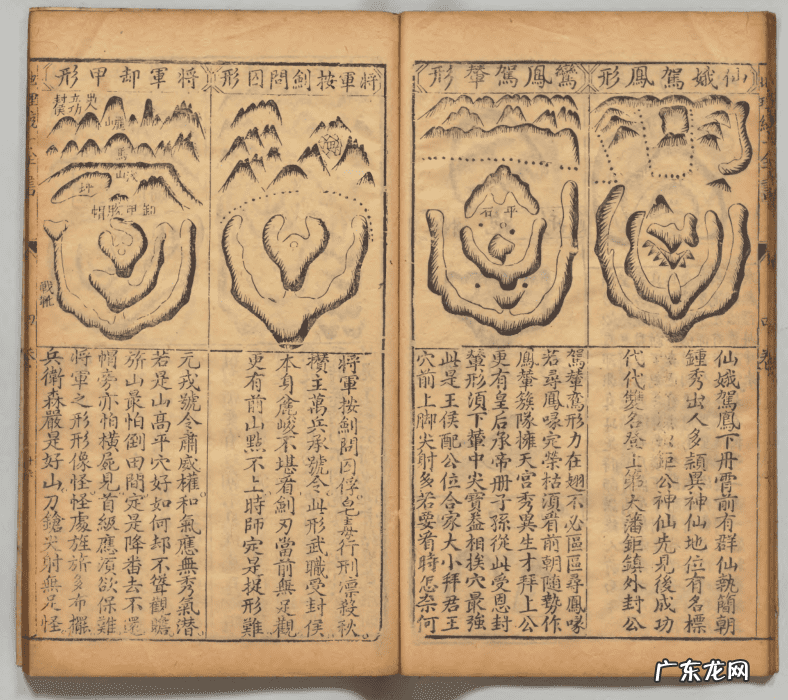 仙娥駕鳳形
仙娥駕鳳下丹霄前有群仙執簡朝
鍾秀出人多頴異神仙地位有名標
鉅公神仙先見後成功
代代變名登上第大藩鉅鎮外封公
鸞鳳駕輦形
平石
駕輦鸞形力在翅不必區區尋鳳喙
若尋鳳喙定榮枯須看前朝隨勢作
鳳輦簇隊擁天宮秀異生才拜上公
更有皇后承帝冊子孫從此受恩封
輦形須下輦中尖寶蓋相挨穴最強
此是王侯配公位合家大小拜君王
穴前上脚尖射多若要看時怎奈何
將軍按劍問囚形
將軍按劍問囚俘行刑凛殺秋
攅主萬兵承號令此形武職受封侯
本身麄峻不堪看劍刃當前無足觀
更有前山點不上時師定是捉形難
將軍卸甲形
卸甲脫帽
元戎號令肅威權和氣應無秀氣潜
若是山高平穴好如何却不聳觀瞻
旂山最怕倒田間定是降番去不還
帽旁亦怕橫屍見首級應須欲保難
將軍之形形像怪怪處旌旂多布擺
兵衛森嚴是好山刀鎗尖射無足怪
广东龙网